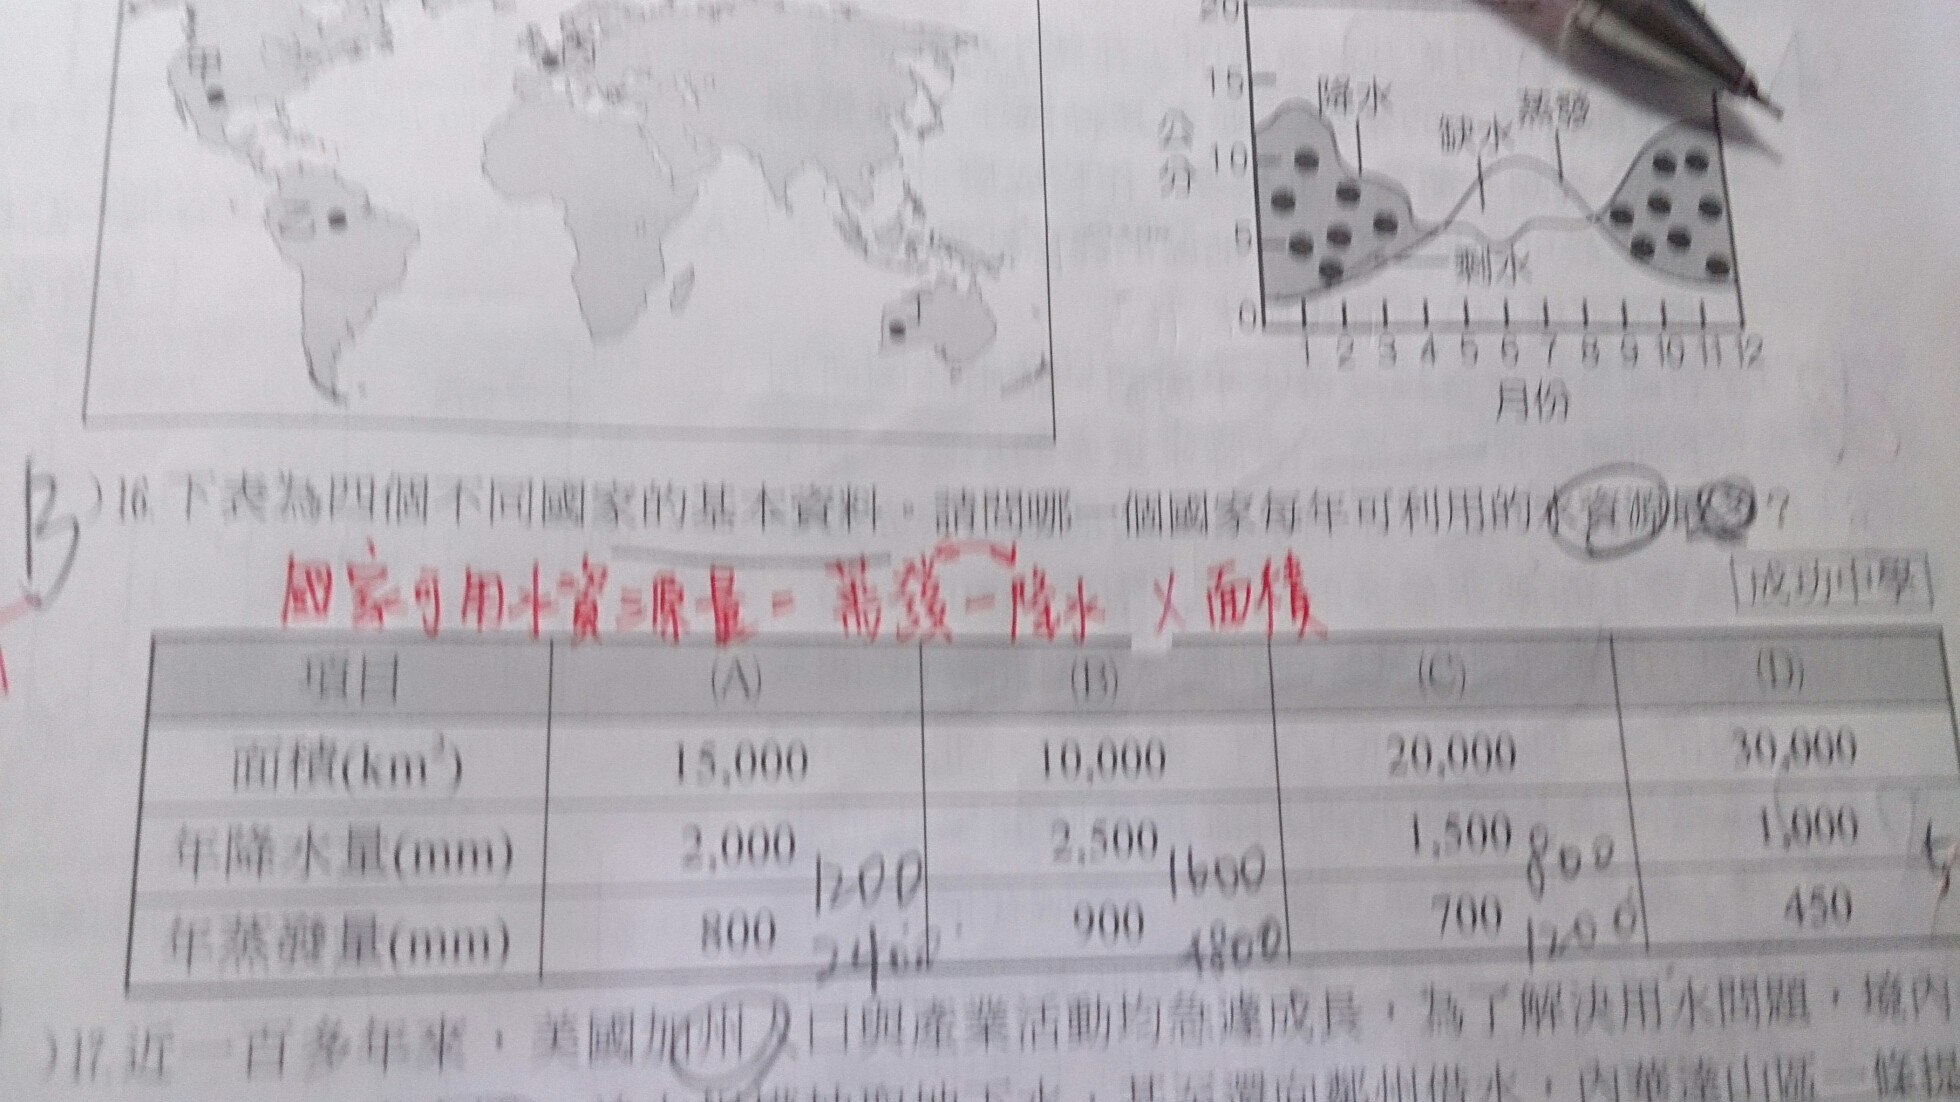 甲
丙
乙
丁
20
15
10
5
0
公分
降水
缺水
蒸發
剩水
1 2 3 4 5 6 7 8 9 10 11 12
月份
B )16.下表為四個不同國家的基本資料。請問哪一個國家每年可利用的水資源最 ?
成功中學
國家可用水資源量= 蒸發-降水 X 面積
項目 (A) (B) (C) (D)
面積(km²) 15,000 10,000 20,000 30,000
年降水量(mm) 2,000 1200 2,500 1600 1,500 800 1,000
年蒸發量(mm) 800 2400 900 4800 700 1200 450
)17.近一百多年來,美國加州人口與產業活動均急遽成長,為了解決用水問題,境內